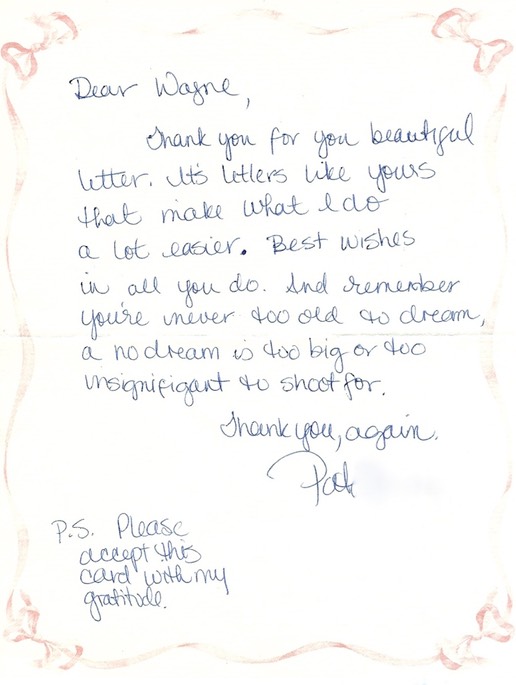 Dear Wayne,
Thank you for you beautiful
letter. It's letters like yours
that make what I do
a lot easier. Best wishes
in all you do. And remember
you're never too old to dream,
a no dream is too big or too
insignifigant to shoot for.
Thank you, again.
Pat
P.S. Please
accept this
card with my
gratitude.